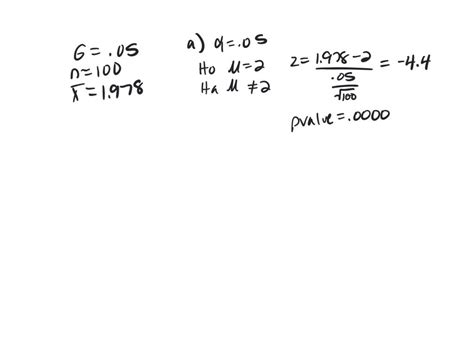 σ = .05
n = 100
x̅ = 1.978
a) α = .05
Ho μ = 2
Ha μ ≠ 2
z = 1.978 - 2 / .05 / √100 = -4.4
pvalue = .0000